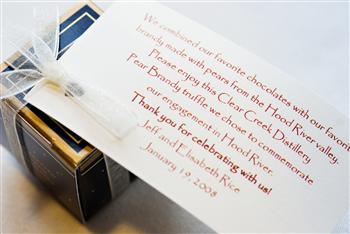 We combined our favorite chocolates with our favorit
brandy made with pears from the Hood River valley.
Please enjoy this Clear Creek Distillery
Pear Brandy truffle we chose to commemorate
our engagement in Hood River.
Thank you for celebrating with us!
Jeff and Elisabeth Rice
January 19, 2008